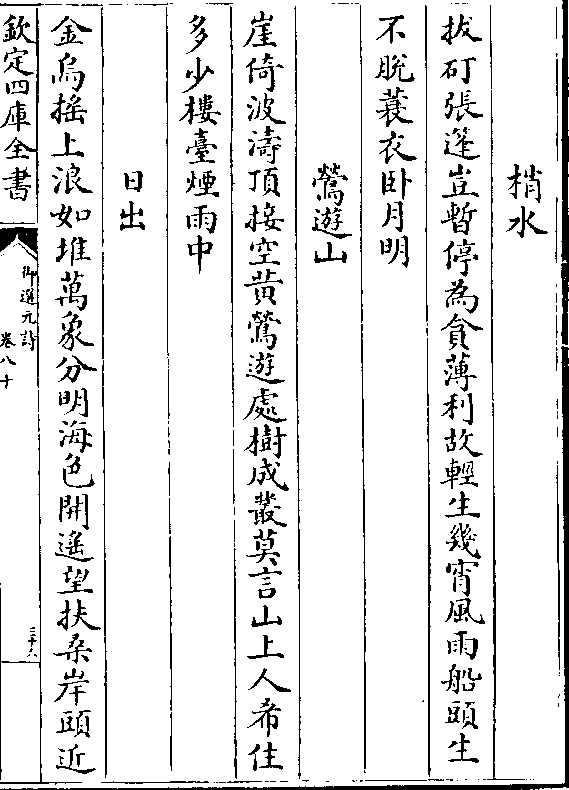 梢水
拔矴張篷豈暫停為貪薄利故輕生幾宵風雨船頭生
不脫蓑衣卧月明
鶯遊山
崖倚波濤頂接空黃鶯遊處樹成叢莫言山上人希住
多少樓臺煙雨中
日出
金烏搖上浪如堆萬象分明海色開遙望扶桑岸頭近
欽定四庫全書
御選元詩
卷八十
三十八